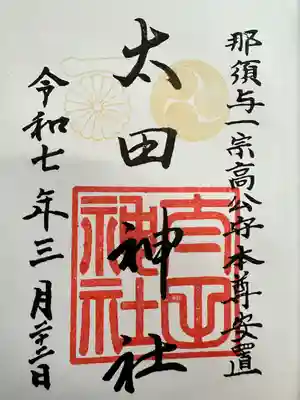 那須与一宗高公守本尊安置
太田神社
令和七年三月廿二日
太田
神社